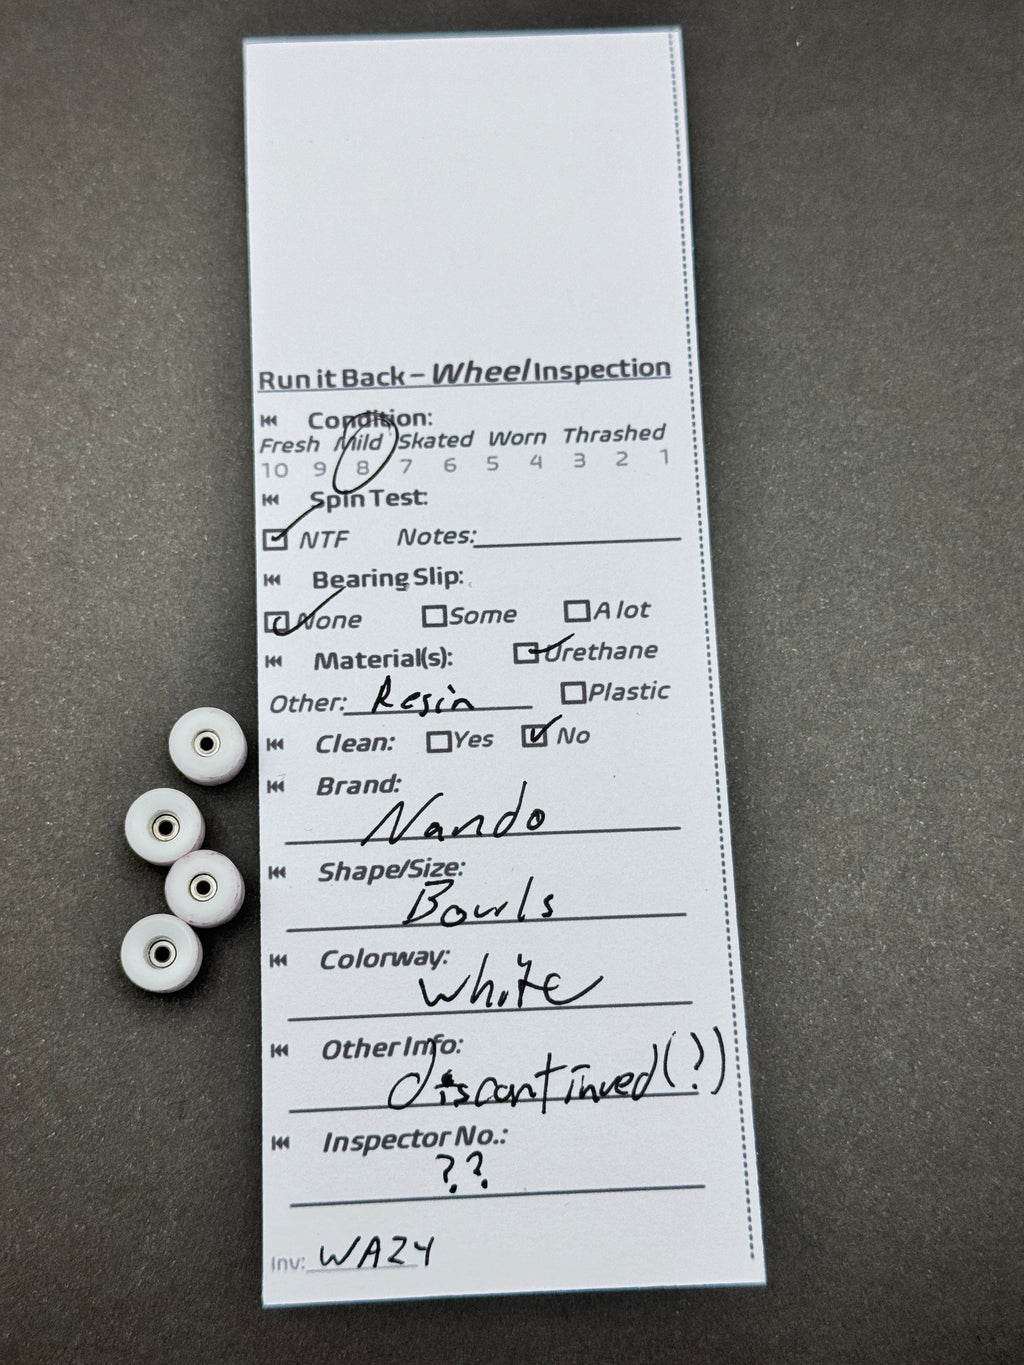 Run it Back – Wheel Inspection
Condition:
Fresh Mild Skated Worn Thrashed
10 9 8 7 6 5 4 3 2 1
Spin Test:
NTF Notes:
Bearing Slip:
None Some A lot
Material(s): Urethane
Other: Resin Plastic
Clean: Yes No
Brand:
Nando
Shape/Size:
Bowls
Colorway:
White
Other Info:
discontinued(?)
Inspector No.:
??
Inv: WAZY